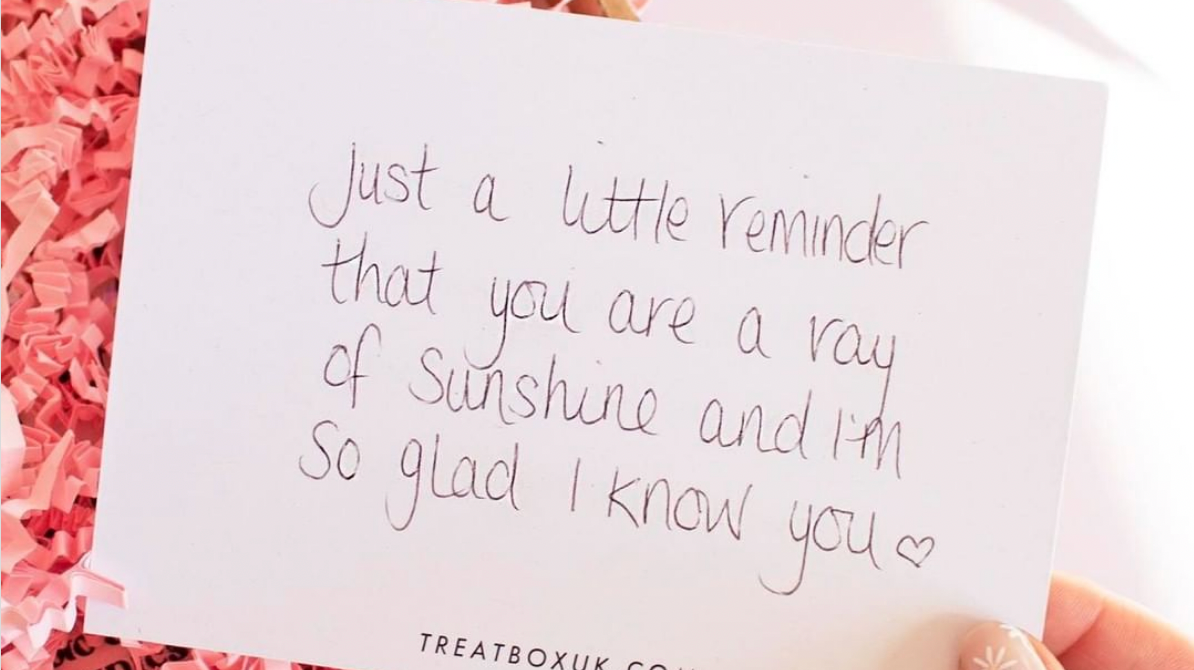 Just a little reminder
that you are a ray
of sunshine and I'm
so glad I know you ♡
TREATBOXUK.COM